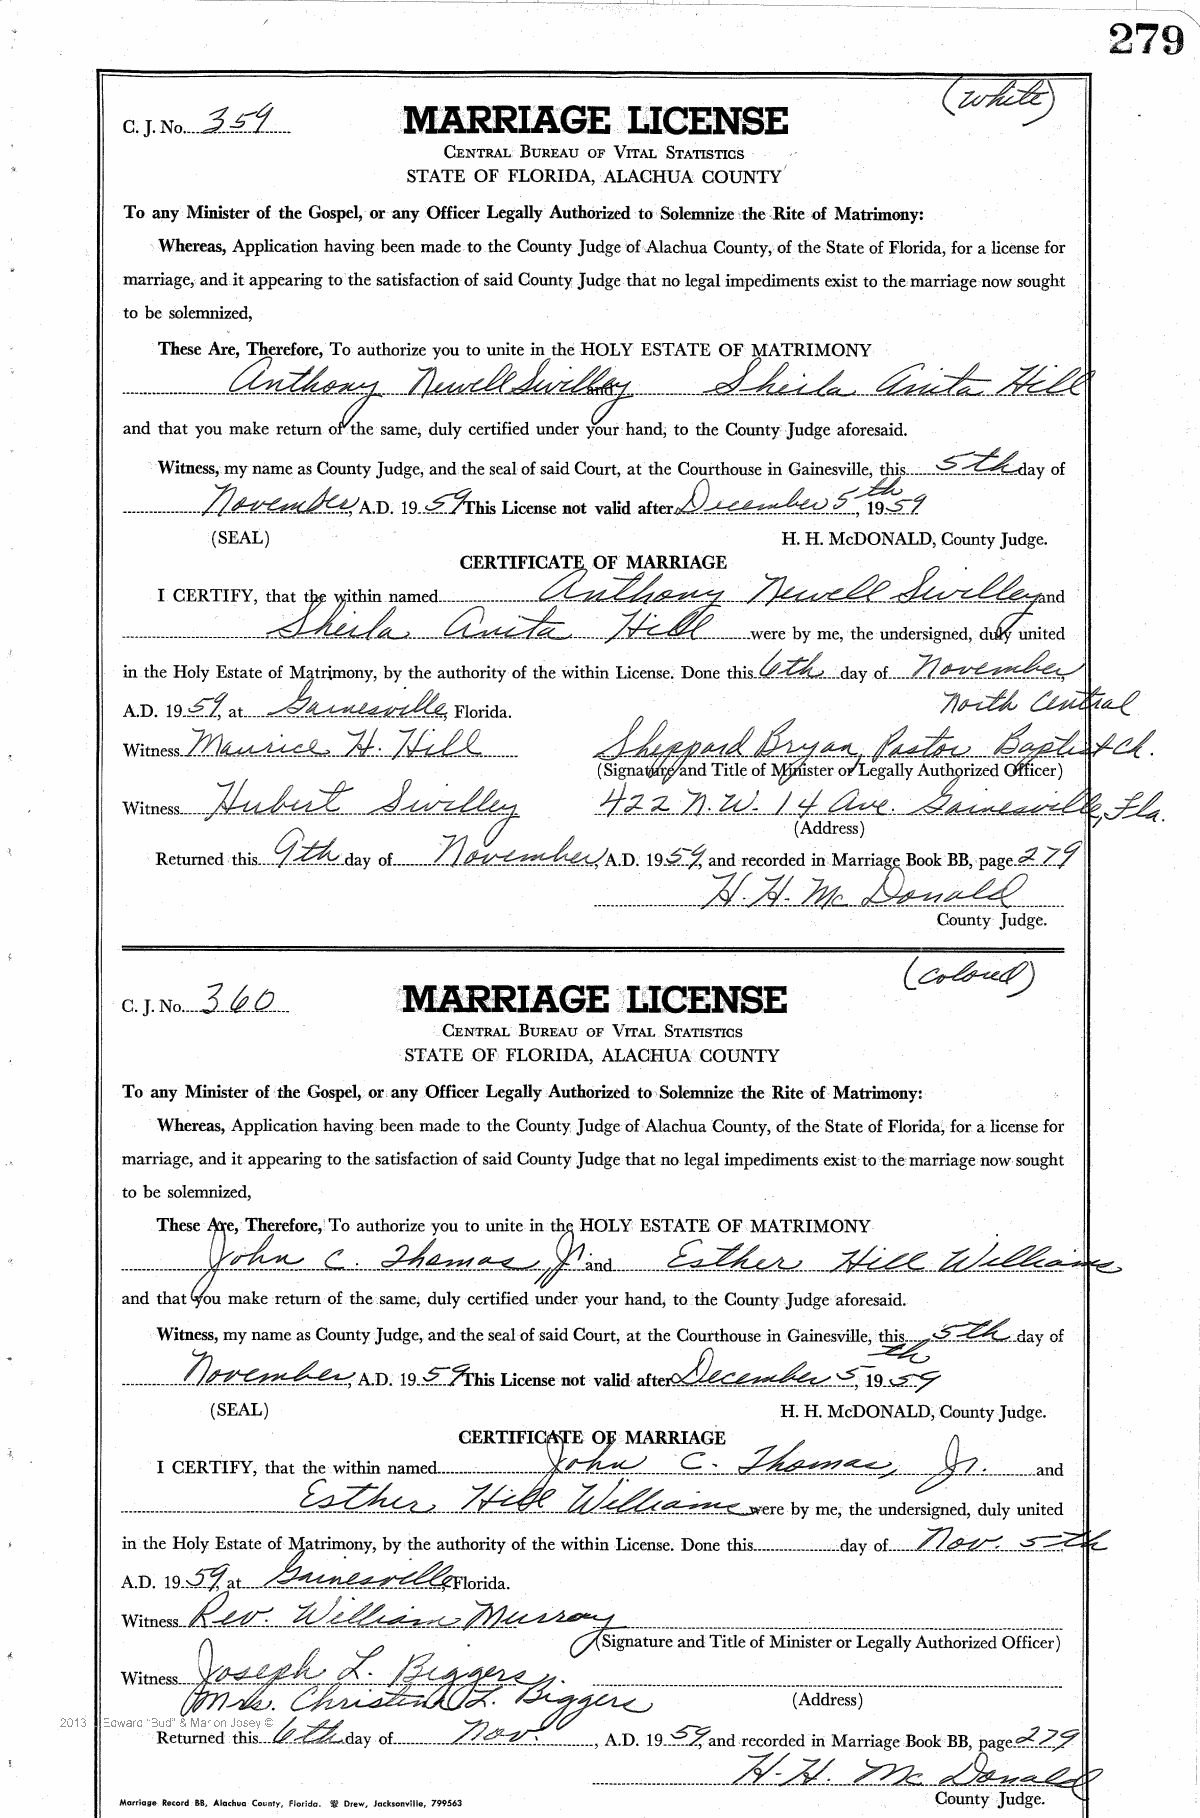 279
(white)
C. J. No. 359
MARRIAGE LICENSE
CENTRAL BUREAU OF VITAL STATISTICS
STATE OF FLORIDA, ALACHUA COUNTY
To any Minister of the Gospel, or any Officer Legally Authorized to Solemnize the Rite of Matrimony:
Whereas, Application having been made to the County Judge of Alachua County, of the State of Florida, for a license for
marriage, and it appearing to the satisfaction of said County Judge that no legal impediments exist to the marriage now sought
to be solemnized,
These Are, Therefore, To authorize you to unite in the HOLY ESTATE OF MATRIMONY
Anthony Newell Swilley and Sheila Anita Hill
and that you make return of the same, duly certified under your hand, to the County Judge aforesaid.
Witness, my name as County Judge, and the seal of said Court, at the Courthouse in Gainesville, this 5th day of
November, A.D. 1959 This License not valid after December 5th, 1959
(SEAL) H. H. McDONALD, County Judge.
CERTIFICATE OF MARRIAGE
I CERTIFY, that the within named Anthony Newell Swilley and
Sheila Anita Hill were by me, the undersigned, duly united
in the Holy Estate of Matrimony, by the authority of the within License. Done this 6th day of November,
A.D. 1959, at Gainesville, Florida. North Central
Witness Maurice H. Hill Sheppard Bryan, Pastor Baptist Ch.
(Signature and Title of Minister or Legally Authorized Officer)
Witness Hubert Swilley 422 N.W. 14 Ave. Gainesville, Fla.
(Address)
Returned this 9th day of November, A.D. 1959, and recorded in Marriage Book BB, page 279
H. H. McDonald
County Judge.
(colored)
C. J. No. 360
MARRIAGE LICENSE
CENTRAL BUREAU OF VITAL STATISTICS
STATE OF FLORIDA, ALACHUA COUNTY
To any Minister of the Gospel, or any Officer Legally Authorized to Solemnize the Rite of Matrimony:
Whereas, Application having been made to the County Judge of Alachua County, of the State of Florida, for a license for
marriage, and it appearing to the satisfaction of said County Judge that no legal impediments exist to the marriage now sought
to be solemnized,
These Are, Therefore, To authorize you to unite in the HOLY ESTATE OF MATRIMONY
John C. Thomas, Jr. and Esther Hill Williams
and that you make return of the same, duly certified under your hand, to the County Judge aforesaid.
Witness, my name as County Judge, and the seal of said Court, at the Courthouse in Gainesville, this 5th day of
November, A.D. 1959 This License not valid after December 5th, 1959
(SEAL) H. H. McDONALD, County Judge.
CERTIFICATE OF MARRIAGE
I CERTIFY, that the within named John C. Thomas, Jr. and
Esther Hill Williams were by me, the undersigned, duly united
in the Holy Estate of Matrimony, by the authority of the within License. Done this day of Nov. 5th
A.D. 1959, at Gainesville, Florida.
Witness Rev. William Murray
(Signature and Title of Minister or Legally Authorized Officer)
Witness Joseph L. Biggers
Mrs. Christina L. Biggers (Address)
2013 Edward "Bud" & Marion Josey ©
Returned this 6th day of Nov., A.D. 1959, and recorded in Marriage Book BB, page 279
H. H. McDonald
County Judge.
Marriage Record BB, Alachua County, Florida. Drew, Jacksonville, 799563